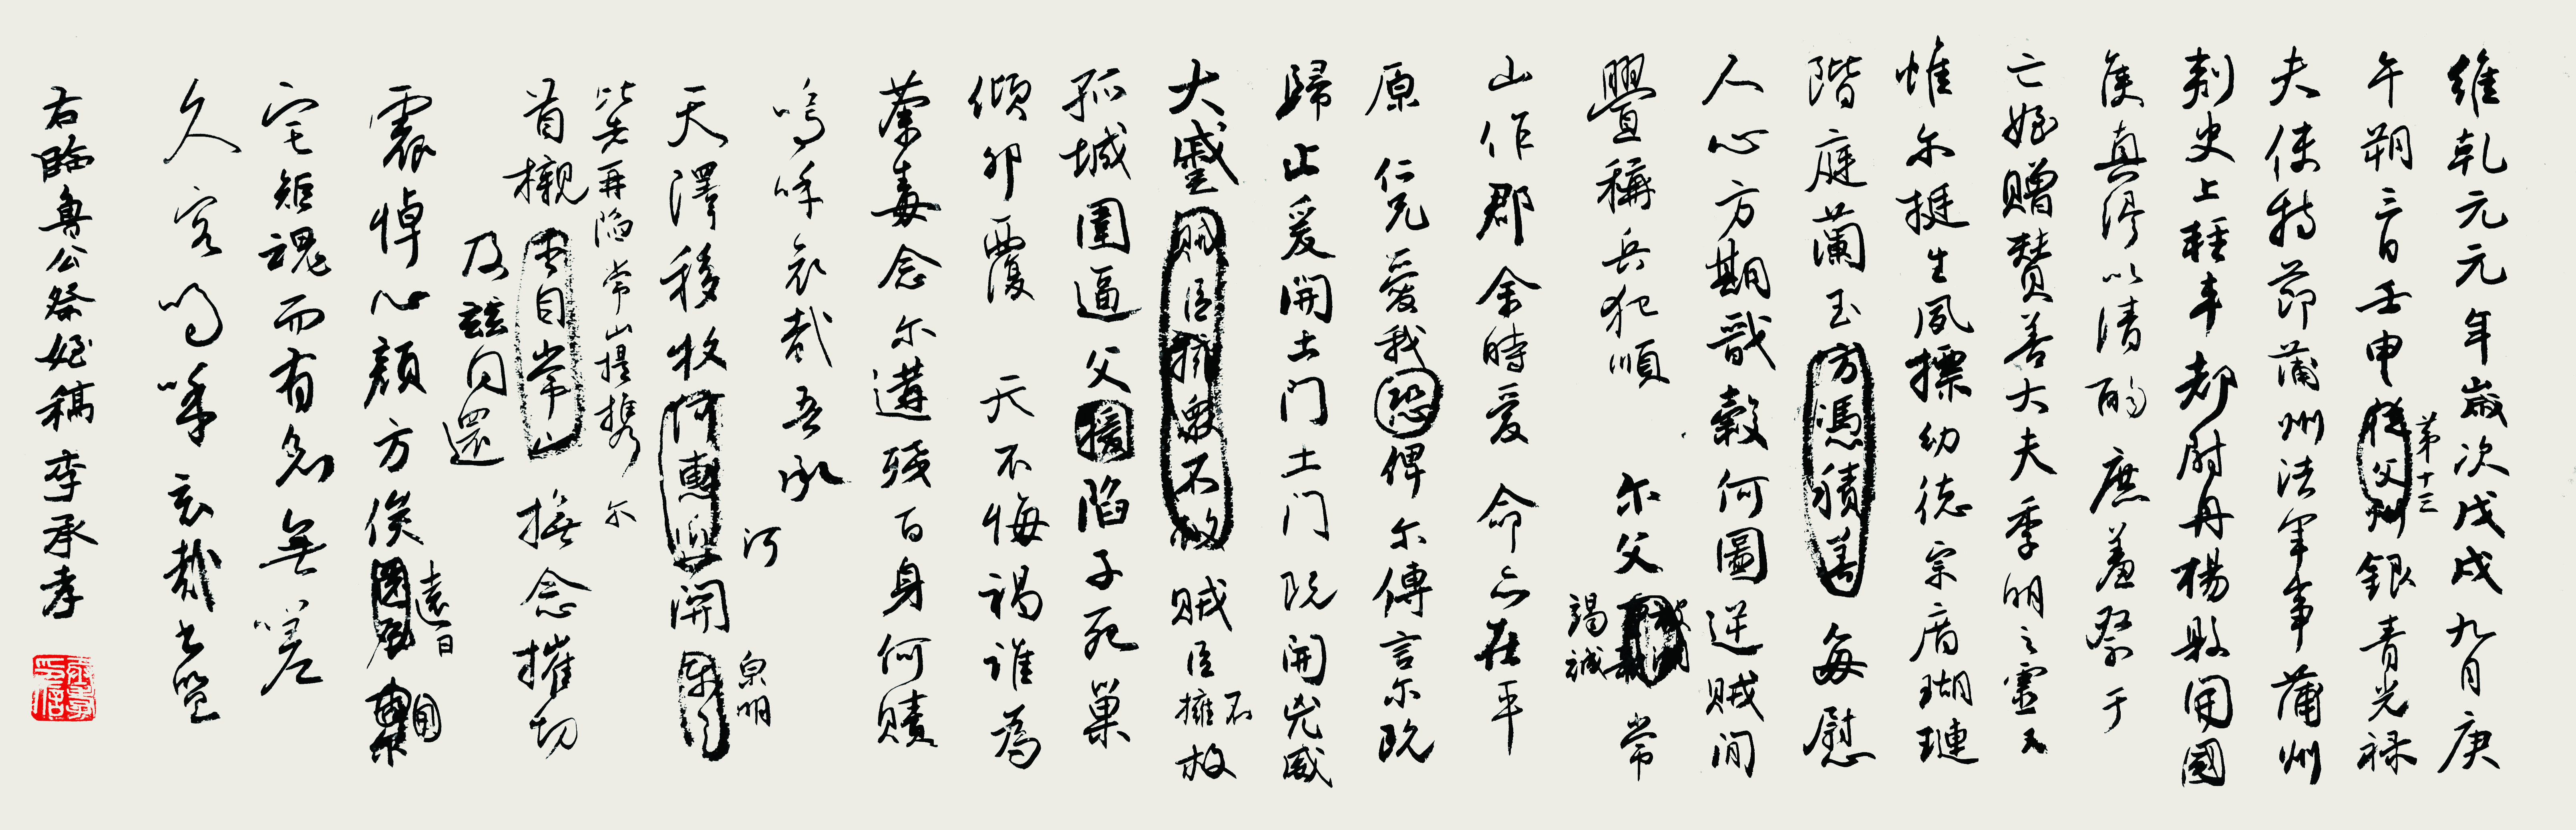 維乾元元年歲次戊戌九月庚
午朔三日壬申
第十三
從父
銀青光禄
夫使持節蒲州諸軍事蒲州
刺史上輕車都尉丹楊縣開國
侯真卿以清酌庶羞祭于
亡姪贈贊善大夫季明之靈曰
惟尔挺生夙標幼德宗廟瑚璉
階庭蘭玉方憑積善每慰
人心方期戩穀何圖逆賊閒
釁稱兵犯順尔父
竭誠
常
山作郡余時受命亦在平
原仁兄愛我恐俾尔傳言尔既
歸止爰開土门土门既開兇威
大蹙賊臣擁衆不救賊臣
不
擁救
孤城圍逼父擒陷子死巢
傾卵覆天不悔禍誰為
荼毒念尔遘殘百身何贖
嗚呼哀哉吾承
天澤移牧河
河
開
泉明
比先再陷常山提携尔
首櫬
自常山
及兹同還
撫念摧切
震悼心顏方俟
遠日
宅兆魂而有知無嗟
久客嗚呼哀哉尚饗
右臨魯公祭姪稿李承孝